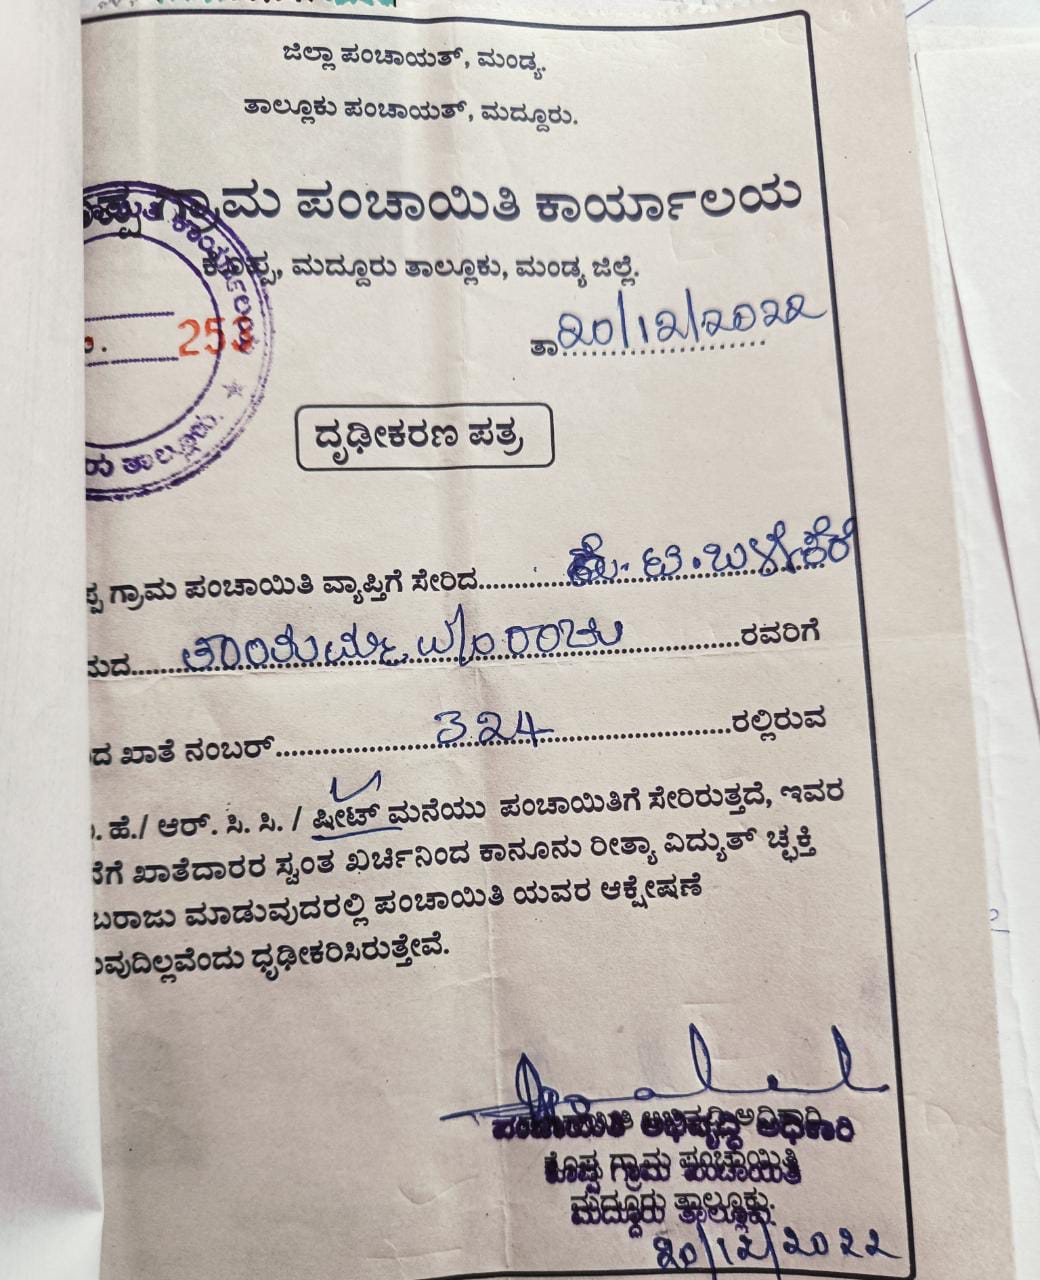 ಜಿಲ್ಲಾ ಪಂಚಾಯತ್, ಮಂಡ್ಯ.
ತಾಲ್ಲೂಕು ಪಂಚಾಯತ್, ಮದ್ದೂರು.
ಗ್ರಾಮ ಪಂಚಾಯಿತಿ ಕಾರ್ಯಾಲಯ
ಕೊಪ್ಪ, ಮದ್ದೂರು ತಾಲ್ಲೂಕು, ಮಂಡ್ಯ ಜಿಲ್ಲೆ.
253
ತಾ 20/12/2022
ದೃಢೀಕರಣ ಪತ್ರ
ಗ್ರಾಮ ಪಂಚಾಯಿತಿ ವ್ಯಾಪ್ತಿಗೆ ಸೇರಿದ ಕೆ. ಟಿ. ಬಳ್ಳೇಕೆರೆ
ತಾಯಮ್ಮ W/o ರಾಜು ರವರಿಗೆ
ಖಾತೆ ನಂಬರ್ 324 ರಲ್ಲಿರುವ
. ಹೆ./ ಆರ್. ಸಿ. ಸಿ. / ಷೀಟ್ ಮನೆಯು ಪಂಚಾಯಿತಿಗೆ ಸೇರಿರುತ್ತದೆ, ಇವರ
ಖಾತೆದಾರರ ಸ್ವಂತ ಖರ್ಚಿನಿಂದ ಕಾನೂನು ರೀತ್ಯಾ ವಿದ್ಯುತ್ ಚ್ಛಕ್ತಿ
ಬರಾಜು ಮಾಡುವುದರಲ್ಲಿ ಪಂಚಾಯಿತಿ ಯವರ ಆಕ್ಷೇಷಣೆ
ವುದಿಲ್ಲವೆಂದು ಧೃಢೀಕರಿಸಿರುತ್ತೇವೆ.
ಪಂಚಾಯಿತಿ ಅಭಿವೃದ್ಧಿ ಅಧಿಕಾರಿ
ಕೊಪ್ಪ ಗ್ರಾಮ ಪಂಚಾಯಿತಿ
ಮದ್ದೂರು ತಾಲ್ಲೂಕು.
20/12/2022